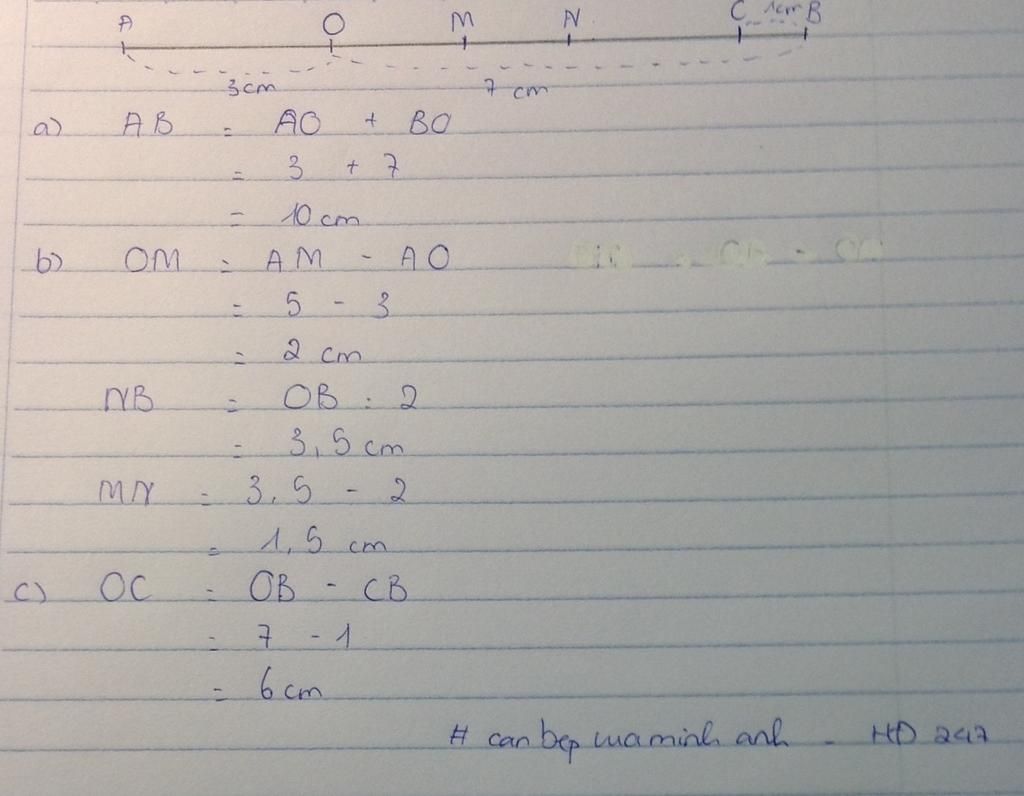 A O M N C 1cm B
3cm 7 cm
a) AB = AO + BO
= 3 + 7
= 10 cm
b) OM = AM - AO
= 5 - 3
= 2 cm
NB = OB : 2
= 3,5 cm
MN = 3,5 - 2
= 1,5 cm
c) OC = OB - CB
= 7 - 1
= 6 cm
# can bep cua minh anh - HD 247